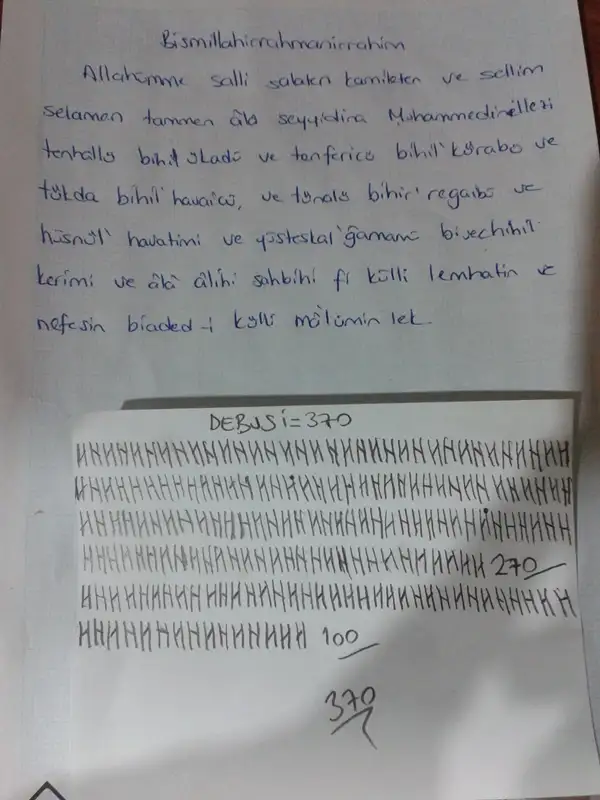 Bismillahirrahmanirrahim
Allahümme salli salaten kamileten ve sellim
selamen tammen âla seyyidina Muhammedinillezi
tenhallü bihil ükadü ve tenfericü bihil' kürabü ve
tükda bihil' havaicü, ve tünalü bihir' regaibü ve
hüsnül' havatimi ve yüsteskal' ğamamü bivechihil
kerimi ve âlâ âlihi sahbihi fi külli lemhatin ve
nefesin biaded-i külli mâlümin lek.
DEBUSİ=370
270
100
370